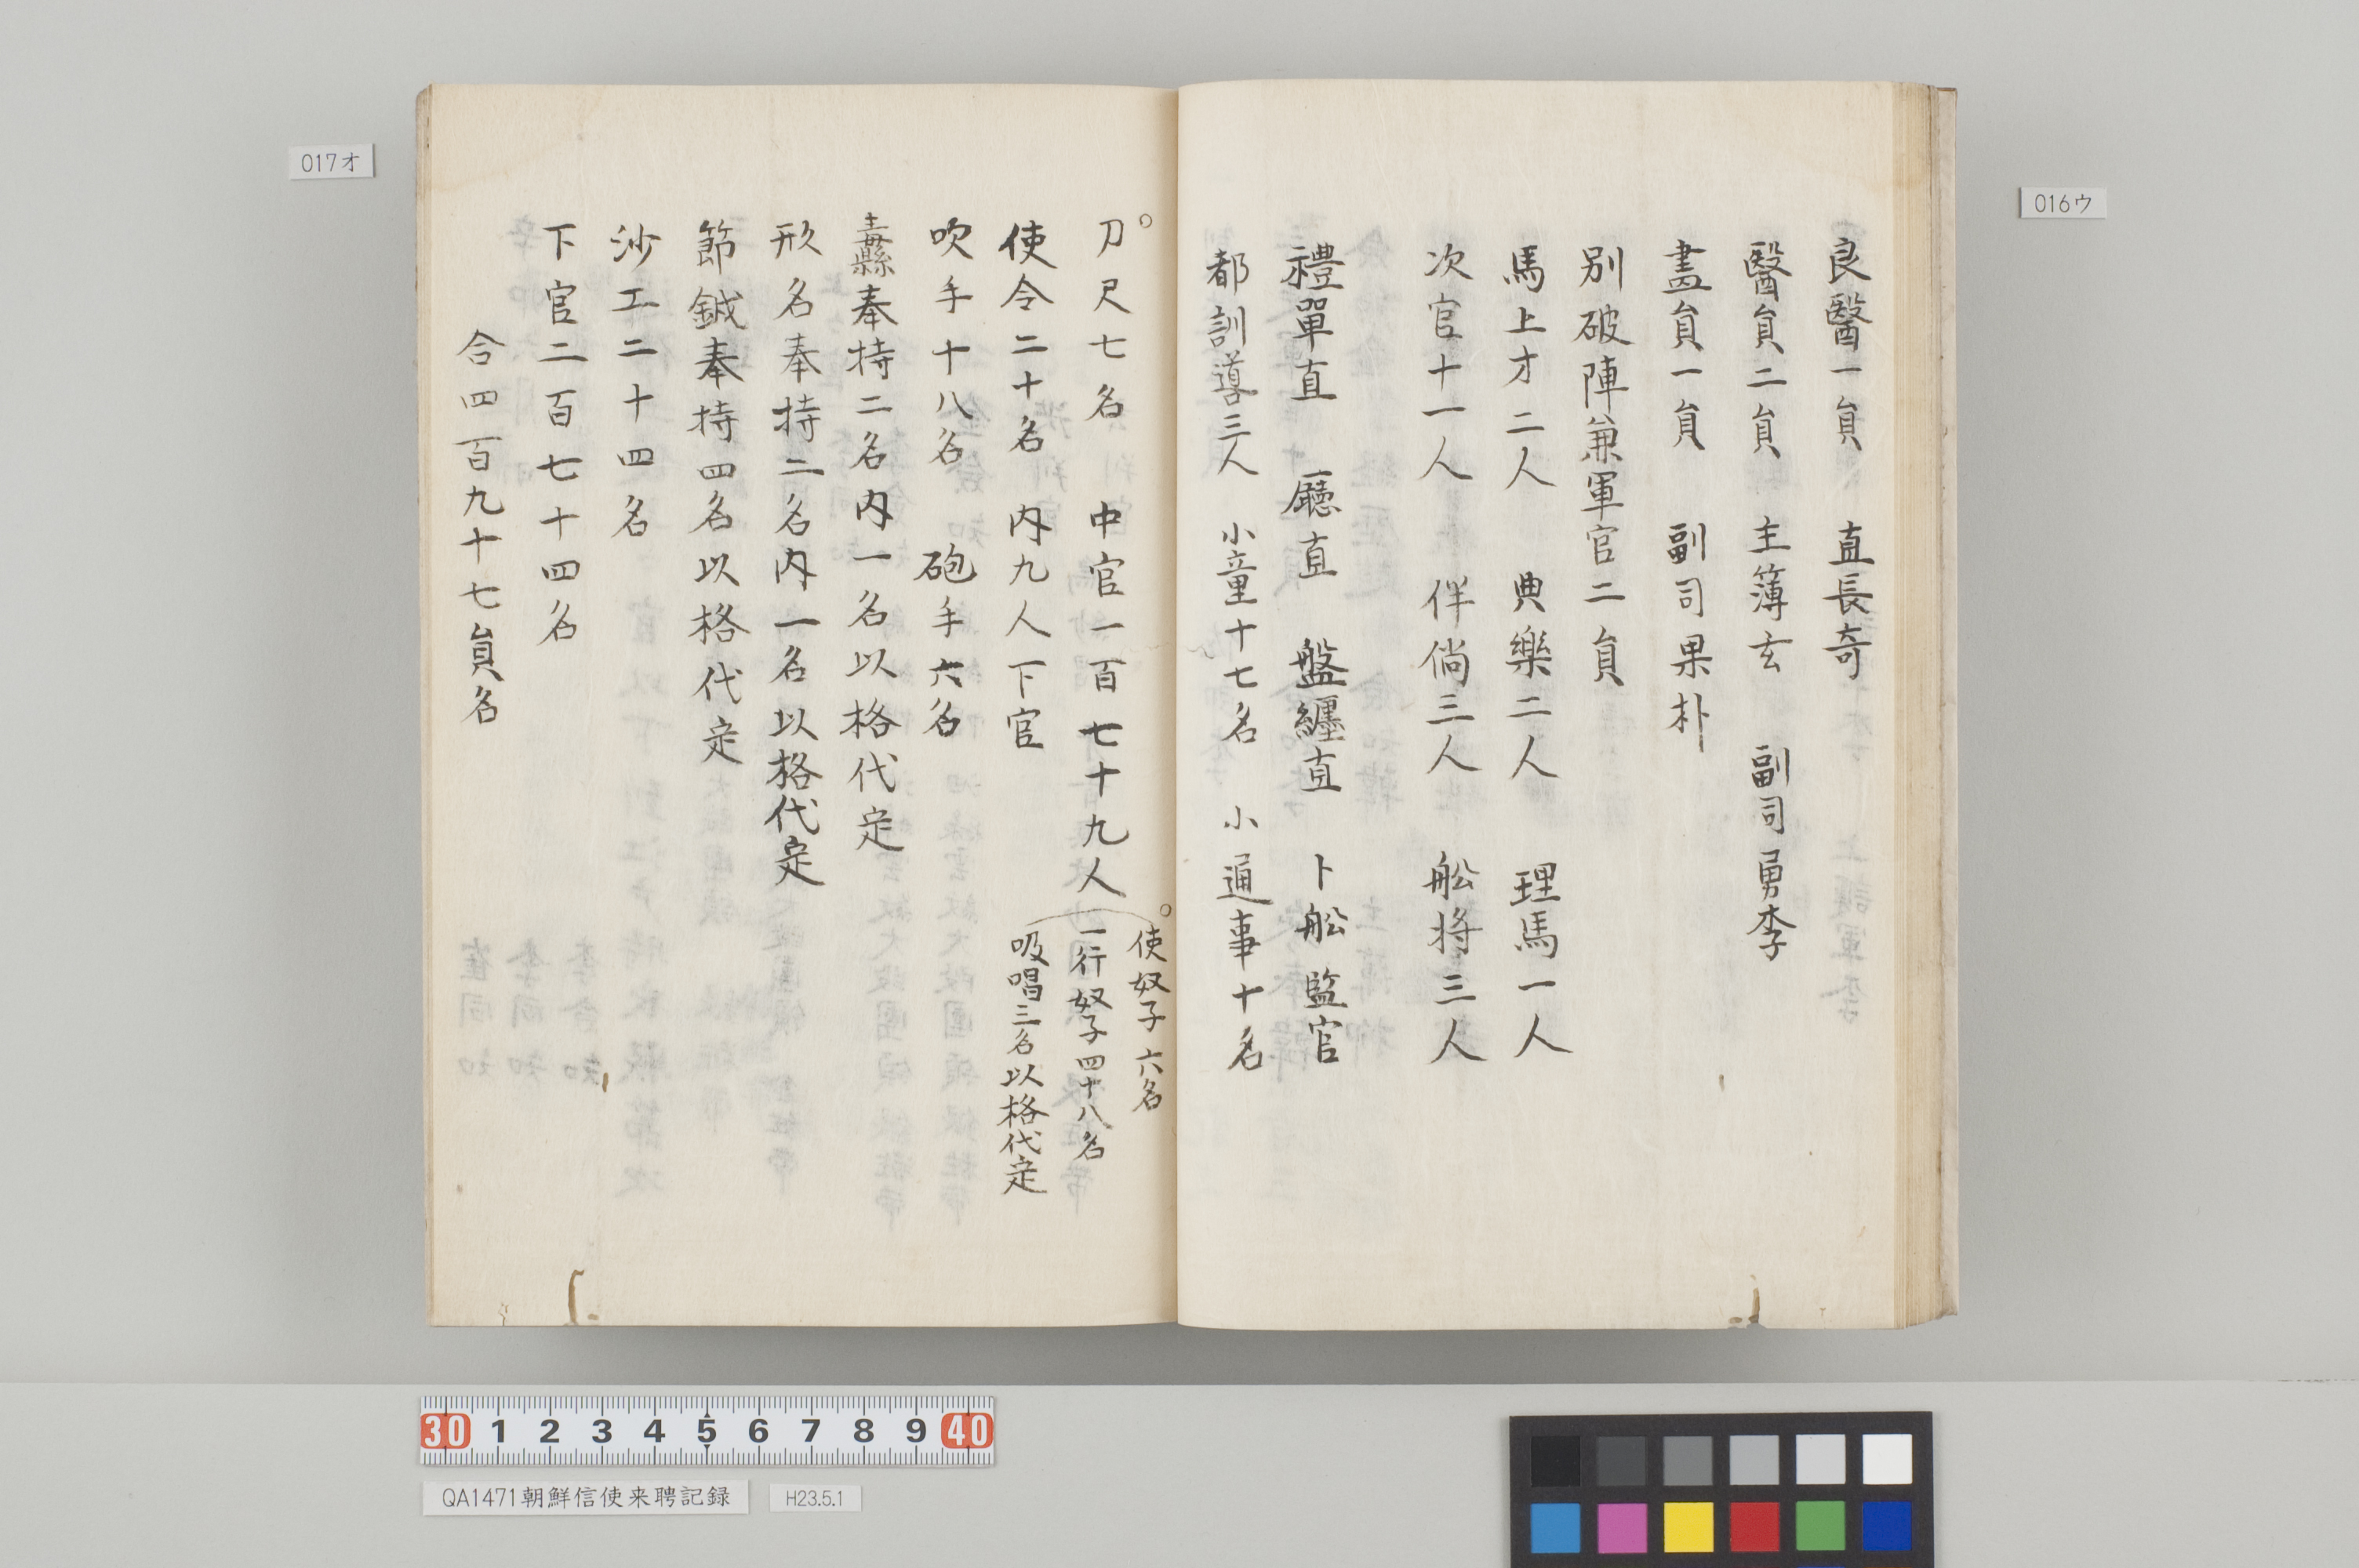 良醫一貟 直長奇
醫貟二貟 主簿玄 副司勇李
畫貟一貟 副司果朴
別破陣兼軍官二貟
馬上才二人 典樂二人 理馬一人
次官十一人 伴倘三人 舩将三人
禮單直 廳直 盤纏直 卜舩監官
都訓導三人 小童十七名 小通事十名
○使奴子六名
一行奴子四十八名
吸唱三名以格代定
○刀尺七名 中官一百七十九人
使令二十名 内九人下官
吹手十八名 砲手六名
纛奉持二名内一名以格代定
形名奉持二名内一名以格代定
節鉞奉持四名以格代定
沙工二十四名
下官二百七十四名
合四百九十七貟名
016ウ
017オ
30 1 2 3 4 5 6 7 8 9 40
QA1471朝鮮信使来聘記録
H23.5.1